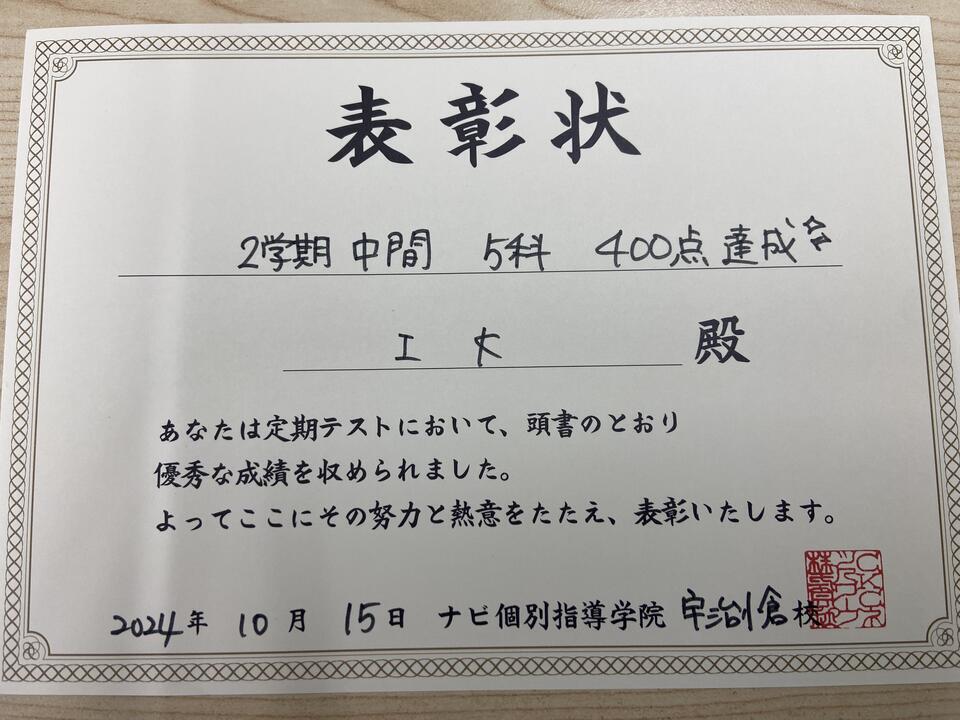 表彰状
2学期 中間 5科 400点 達成☆
工 大 殿
あなたは定期テストにおいて、頭書のとおり
優秀な成績を収められました。
よってここにその努力と熱意をたたえ、表彰いたします。
2024年 10月 15日 ナビ個別指導学院 宇治小倉校